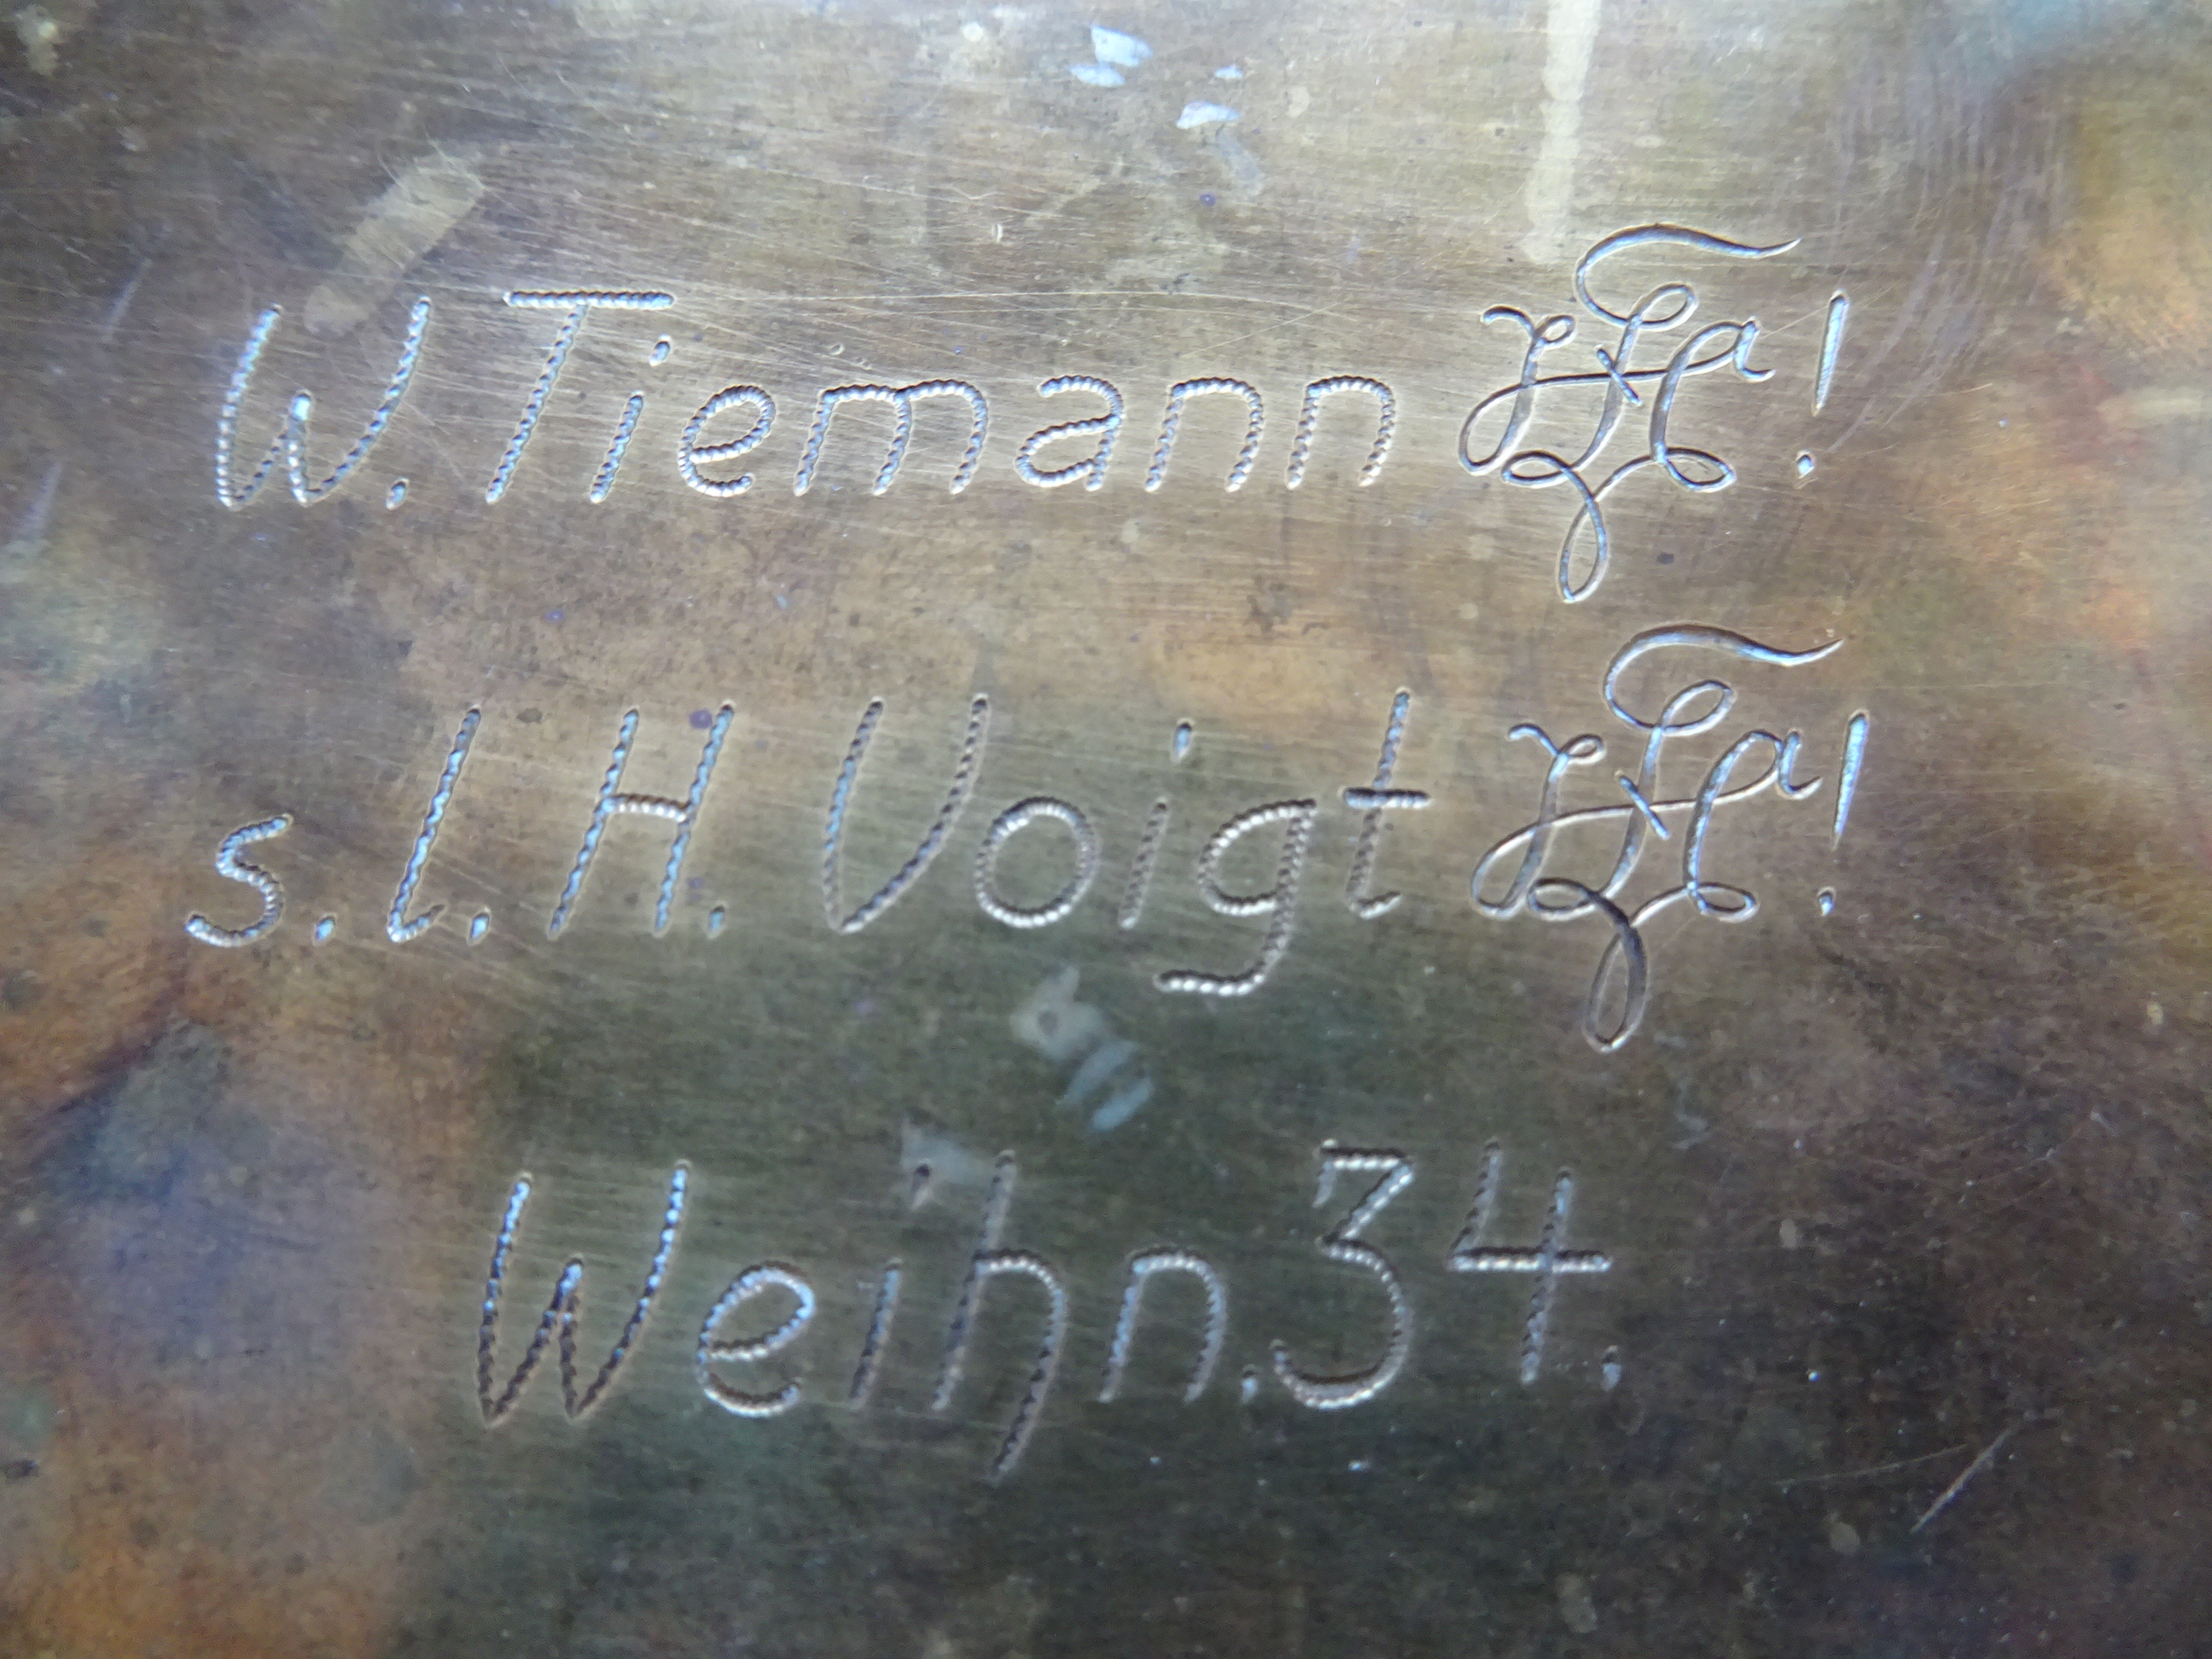 W. Tiemann !
s. l. H. Voigt !
Weihn. 34.